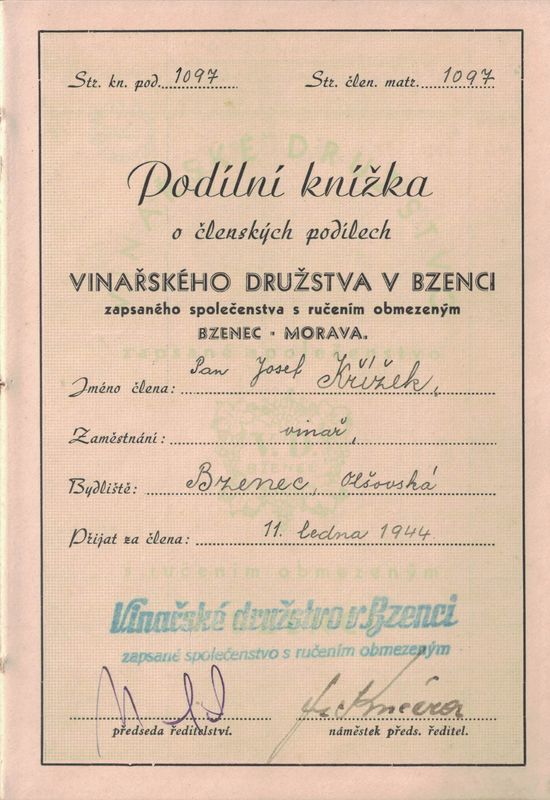 Str. kn. pod. 1097 Str. člen. matr. 1097
Podílní knížka
o členských podílech
VINAŘSKÉHO DRUŽSTVA V BZENCI
zapsaného společenstva s ručením obmezeným
BZENEC - MORAVA.
Jméno člena: Pan Josef Křížek,
Zaměstnání: vinař,
Bydliště: Bzenec, Olšovská
Přijat za člena: 11. ledna 1944
Vinařské družstvo v Bzenci
zapsané společenstvo s ručením obmezeným
předseda ředitelství. náměstek předs. ředitel.
VINAŘSKÉ DRUŽSTVO
zapsané společenstvo
V. D.
BZENEC
s ručením obmezeným